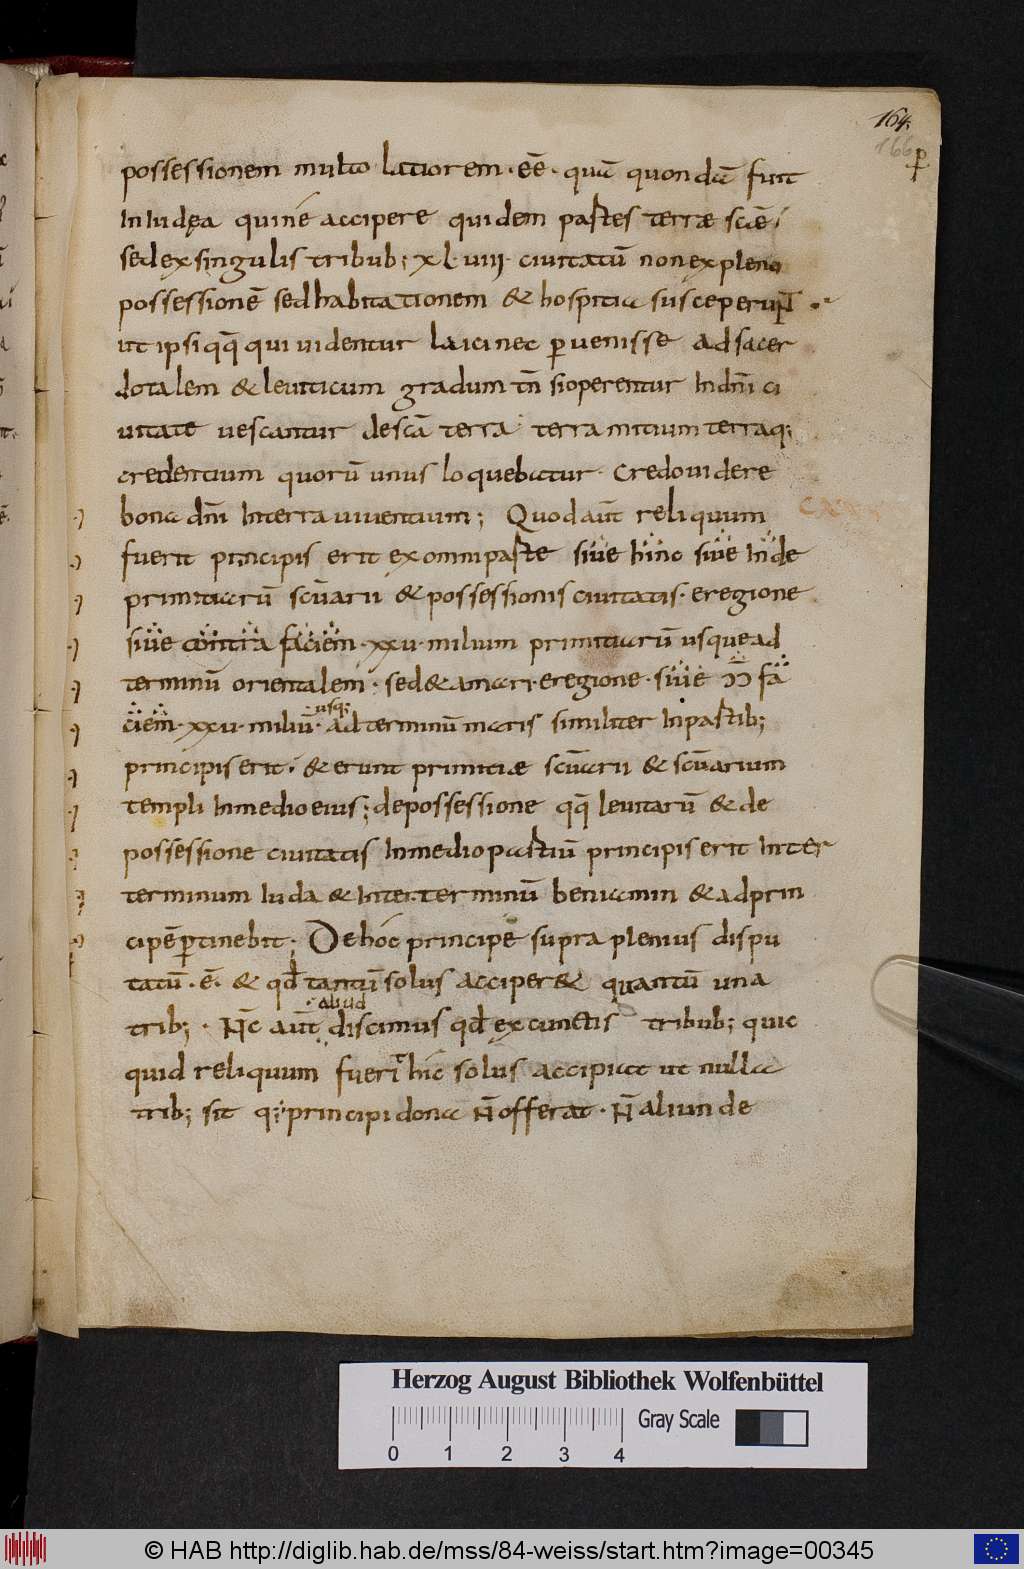 164.
166
possessionem multo latiorem · eē · quā quondā fuit
In Iudęa qui nec accipere quidem partes terræ scǣ
sed ex singulis tribub; xl·viii· civitatū non ex pleno
possessionē sed habitationem & hospitia susceperunt
ut ipsi qq̄ qui videntur laici nec pervenisse ad sacer
dotalem & leviticum gradum tn̄ si operentur In dn̄i ci
vitate vescantur de scā terra terra mitium terraq;
credentium quorū unus loquebatur · Credo videre
bona dn̄i In terra viventium; Quod aūt reliquum
fuerit principis erit ex omni parte sive hinc sive Inde
primitiarū scūarii & possessionis civitatis · e regione
sive contra faciem · xxv · milium primitiarū usque ad
terminū orientalem · sed & a mari · e regione · sive
faciem · xxv · miliū · usq; ad terminū maris similiter In partib;
principis erit · & erunt primitiæ scūarii & scūarium
templi In medio eius; de possessione qq̄ levitarū & de
possessione civitatis In medio partiū principis erit Inter
terminum Iuda & Inter terminū beniamin & ad prin
cipē ꝑtinebit · De hoc principe supra plenius dispu
tatū · ē · & qđ tantū solus acciper& quantū una
trib; · N̄c aūt aliud discimus qđ ex cunctis tribub; quic
quid reliquum fuerit hic solus accipiat ut nulla
trib; sit q; principi dona n̄ offerat · N̄ aliunde
Herzog August Bibliothek Wolfenbüttel
Gray Scale
0 1 2 3 4
© HAB http://diglib.hab.de/mss/84-weiss/start.htm?image=00345